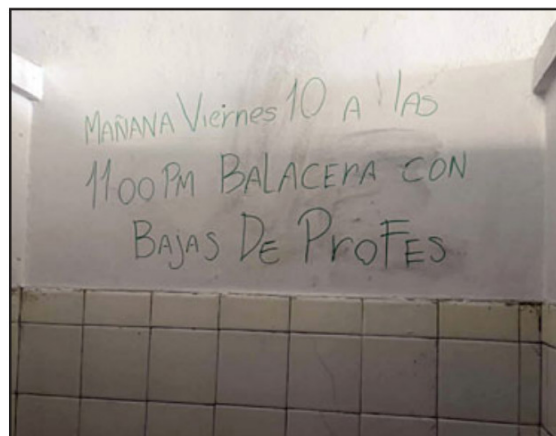 MAÑANA Viernes 10 A las
1100 PM BALACERA CON
BAJAS DE PROFES